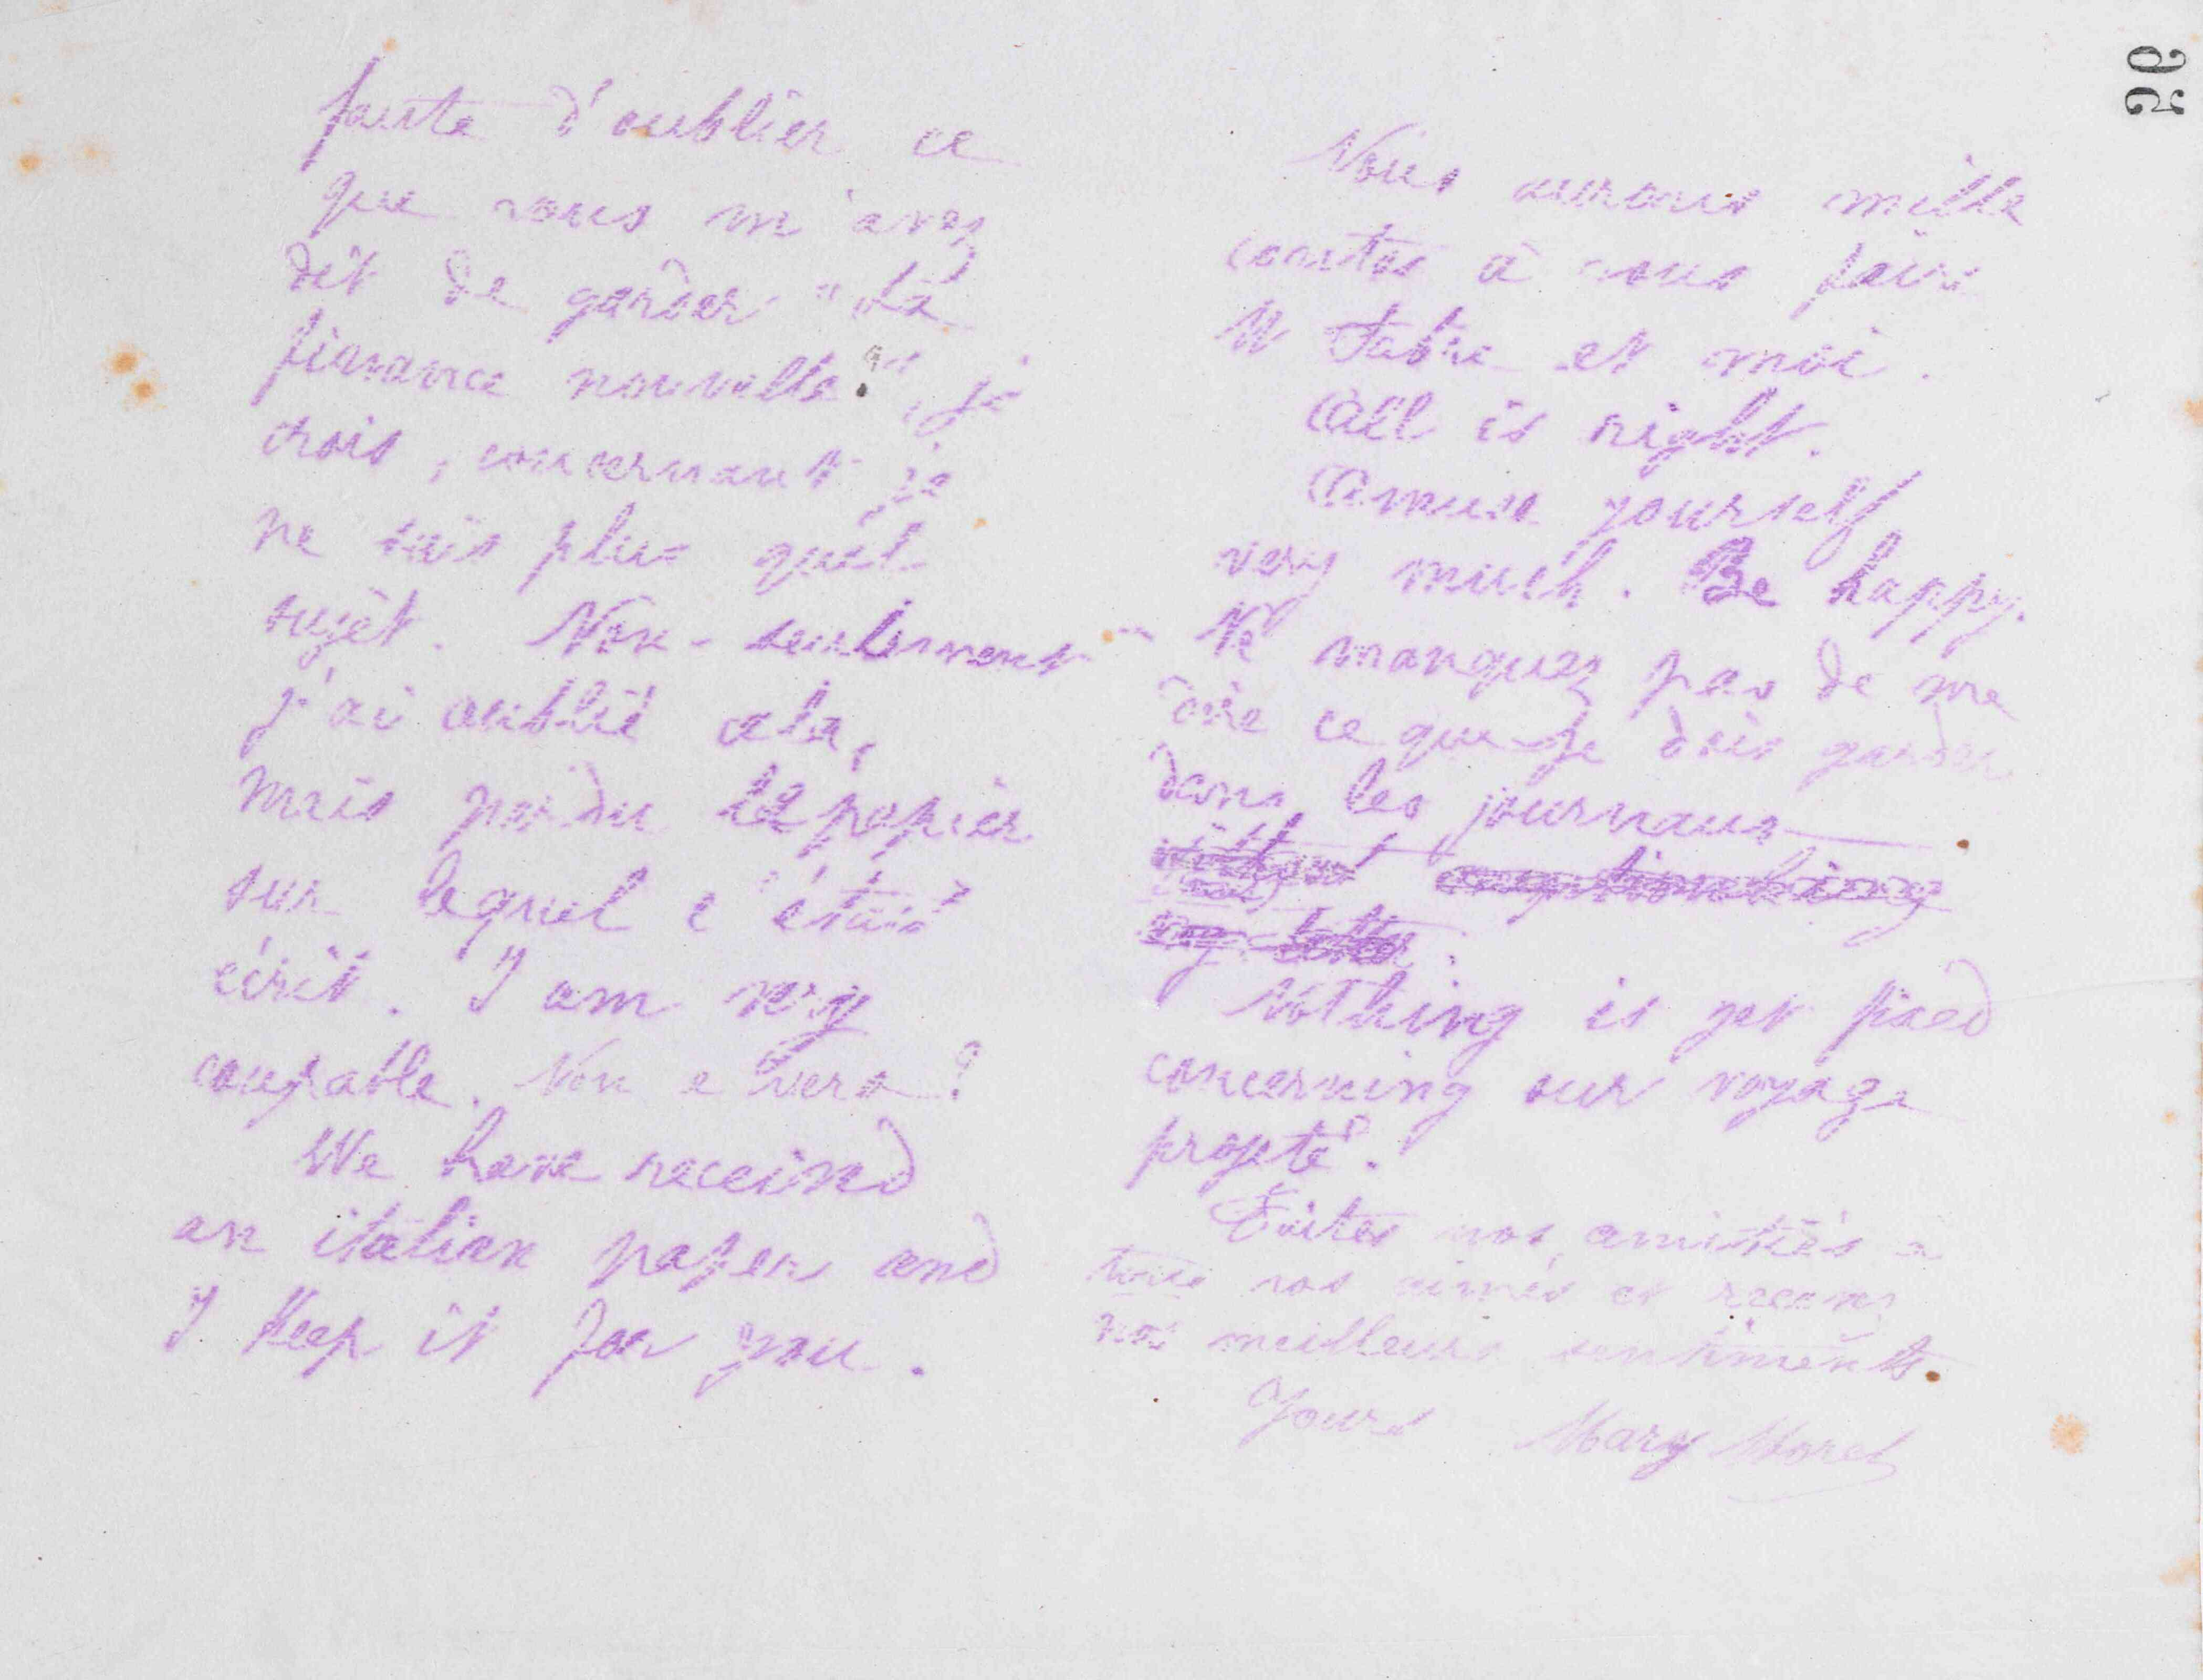 faute d'oublier ce
que vous m'avez
dit de garder "La
finance nouvelle", je
crois, concernant je
ne sais plus quel
sujet. Non-seulement
j'ai oublié cela,
mais perdu le papier
sur lequel c'était
écrit. I am very
coupable. Non e vero?
We have received
an italian paper and
I keep it for you.
Nous aurons mille
contes à vous faire
M Fabre et moi.
All is right.
Amuse yourself
very much. Be happy.
Ne manquez pas de me
dire ce que je dois garder
dans les journaux
without
my letter.
Nothing is yet fixed
concerning our voyage
projeté.
Faites nos amitiés à
tous vos aimés et recevez
nos meilleurs sentiments.
Yours Mary Moret
56